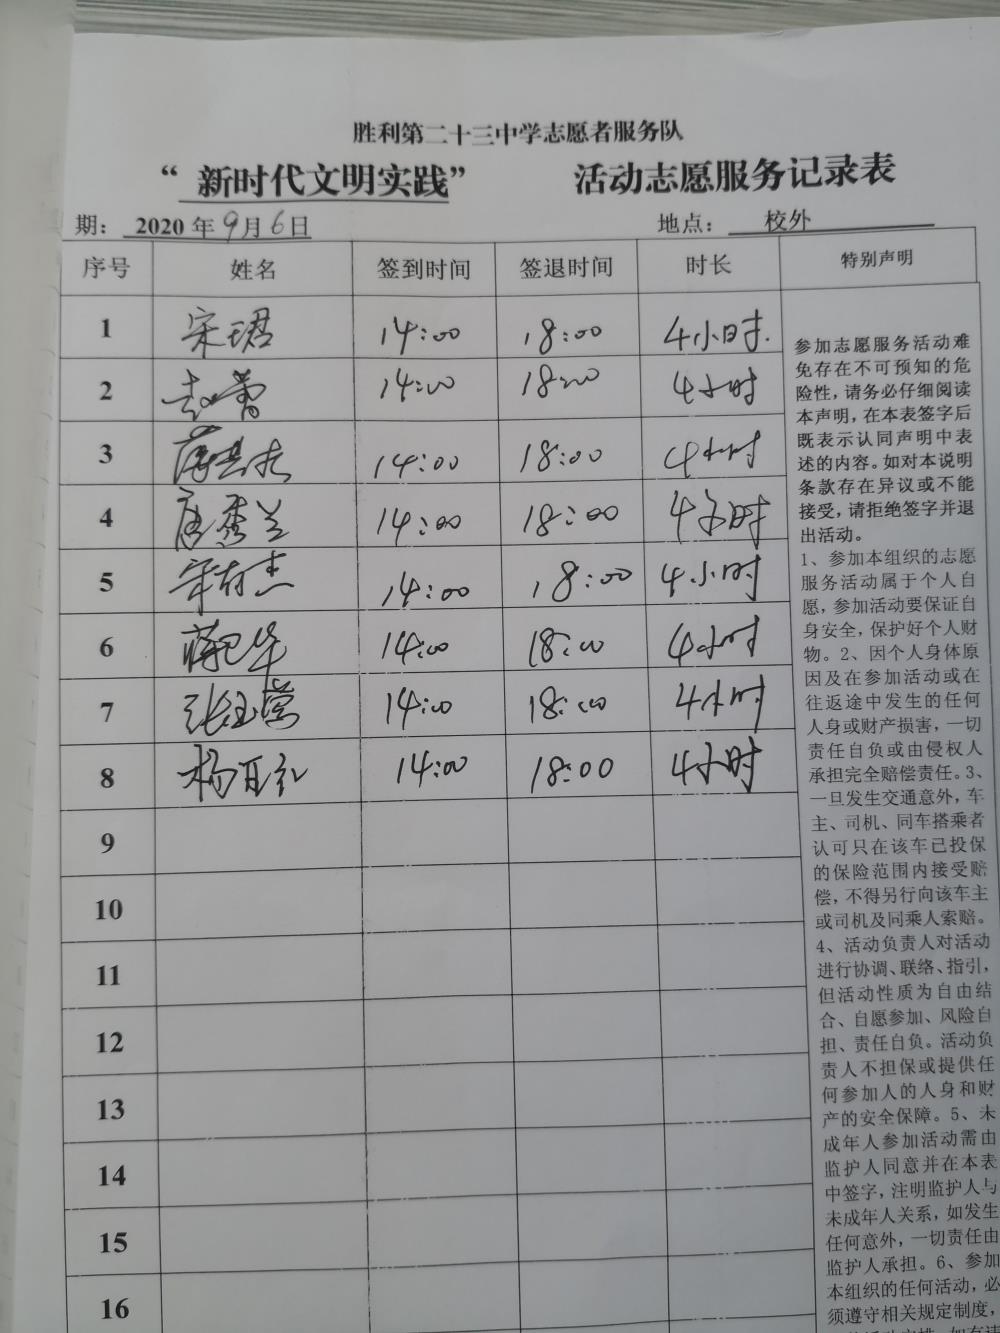 胜利第二十三中学志愿者服务队
“新时代文明实践” 活动志愿服务记录表
期： 2020年9月6日 地点： 校外
序号 姓名 签到时间 签退时间 时长 特别声明
1 宋珺 14:00 18:00 4小时.
2 14:00 18:00 4小时
3 14:00 18:00 4小时
4 唐秀兰 14:00 18:00 4小时
5 14:00 18:00 4小时
6 蒋卫华 14:00 18:00 4小时
7 14:00 18:00 4小时
8 杨百礼 14:00 18:00 4小时
9
10
11
12
13
14
15
16
参加志愿服务活动难
免存在不可预知的危
险性，请务必仔细阅读
本声明，在本表签字后
既表示认同声明中表
述的内容。如对本说明
条款存在异议或不能
接受，请拒绝签字并退
出活动。
1、参加本组织的志愿
服务活动属于个人自
愿，参加活动要保证自
身安全，保护好个人财
物。2、因个人身体原
因及在参加活动或在
往返途中发生的任何
人身或财产损害，一切
责任自负或由侵权人
承担完全赔偿责任。3、
一旦发生交通意外，车
主、司机、同车搭乘者
认可只在该车已投保
的保险范围内接受赔
偿，不得另行向该车主
或司机及同乘人索赔。
4、活动负责人对活动
进行协调、联络、指引，
但活动性质为自由结
合、自愿参加、风险自
担、责任自负。活动负
责人不担保或提供任
何参加人的人身和财
产的安全保障。5、未
成年人参加活动需由
监护人同意并在本表
中签字，注明监护人与
未成年人关系，如发生
任何意外，一切责任由
监护人承担。6、参加
本组织的任何活动，必
须遵守相关规定制度，